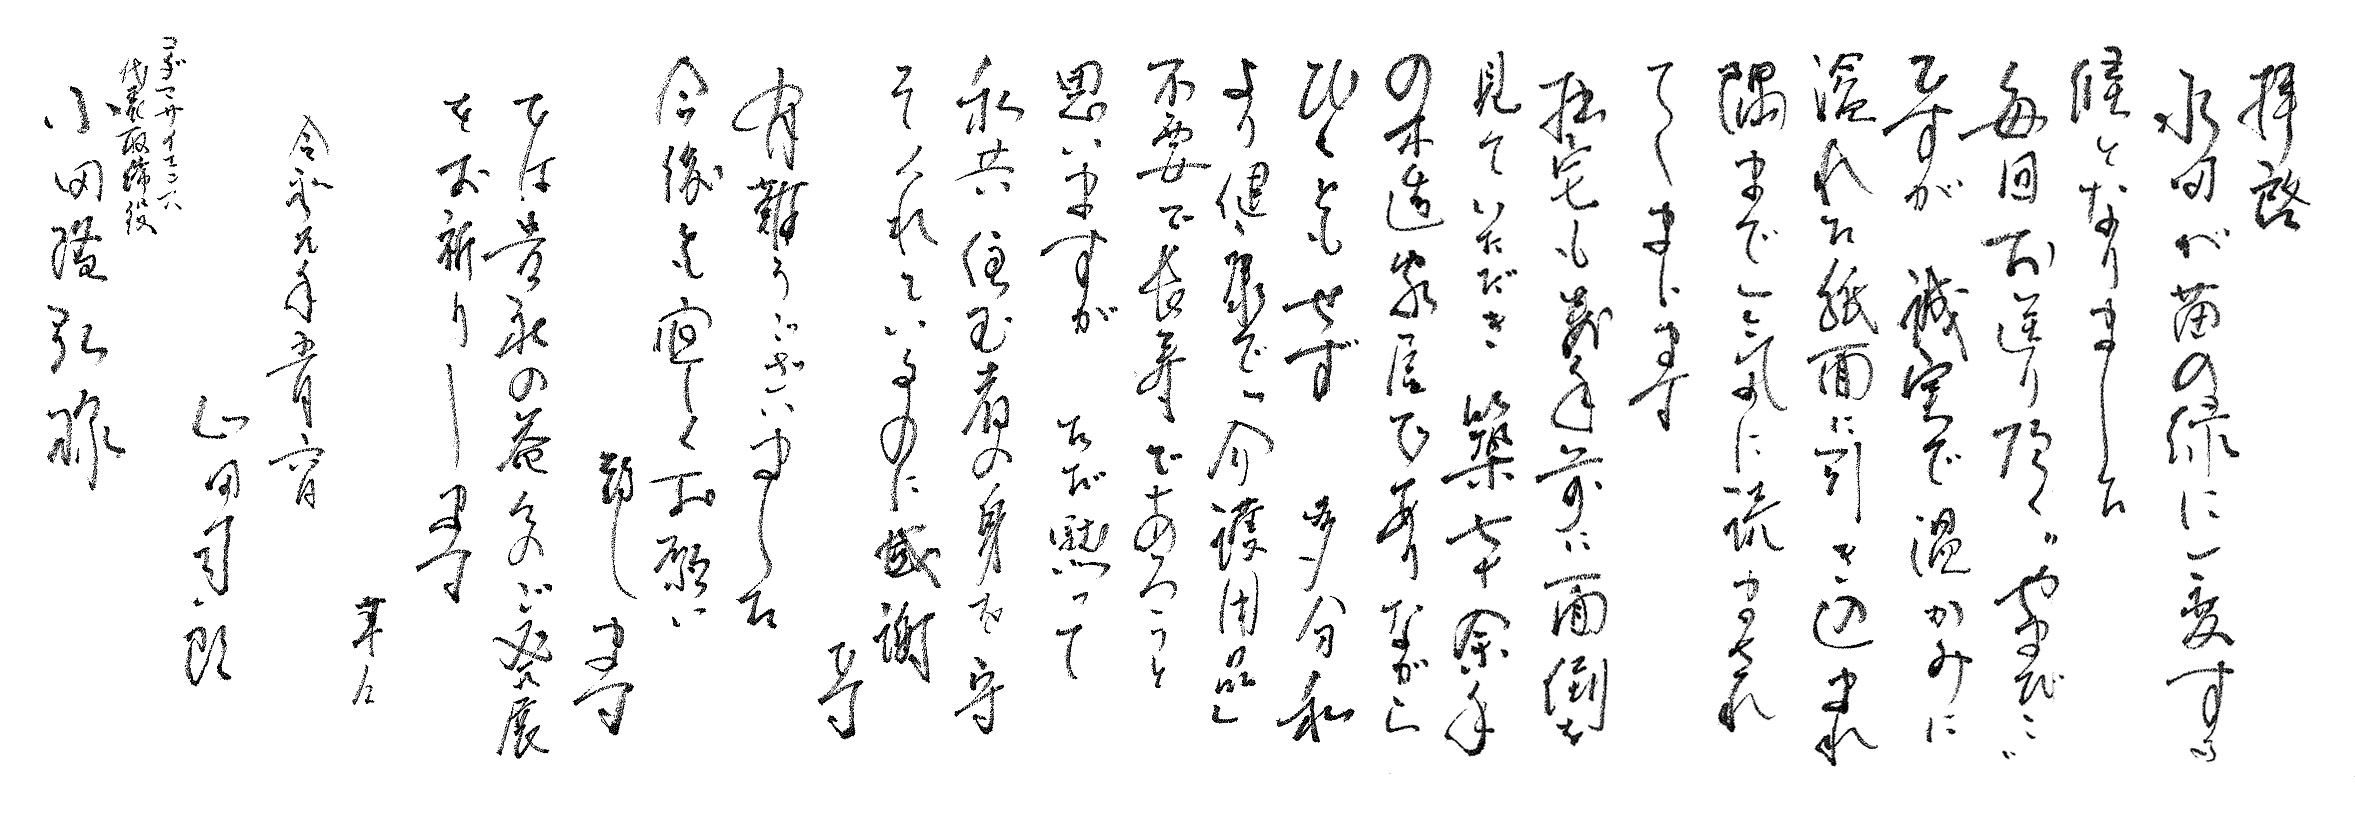 拝啓
水田が苗の緑に一変する
候となりました
毎回お送り頂く“やまびこ”
ですが 誠実で温かみに
溢れた紙面に引き込まれ
隅まで一気に読まされ
てしまいます
拙宅も数年前に面倒を
見ていただき 築七十余年
の木造家屋でありながら
びくともせず 多分私
より健康で「介護用品」
不要で長寿であろうと
思いますが ただ黙って
私共住む者の身を守
てくれているのに感謝
です
有難うございました
今後も宜しくお願い
致します
では貴社の益々のご発展
をお祈りします
草々
令和元年五月六日
山田司郎
コダマサイエンス
代表取締役
小田隆弘様